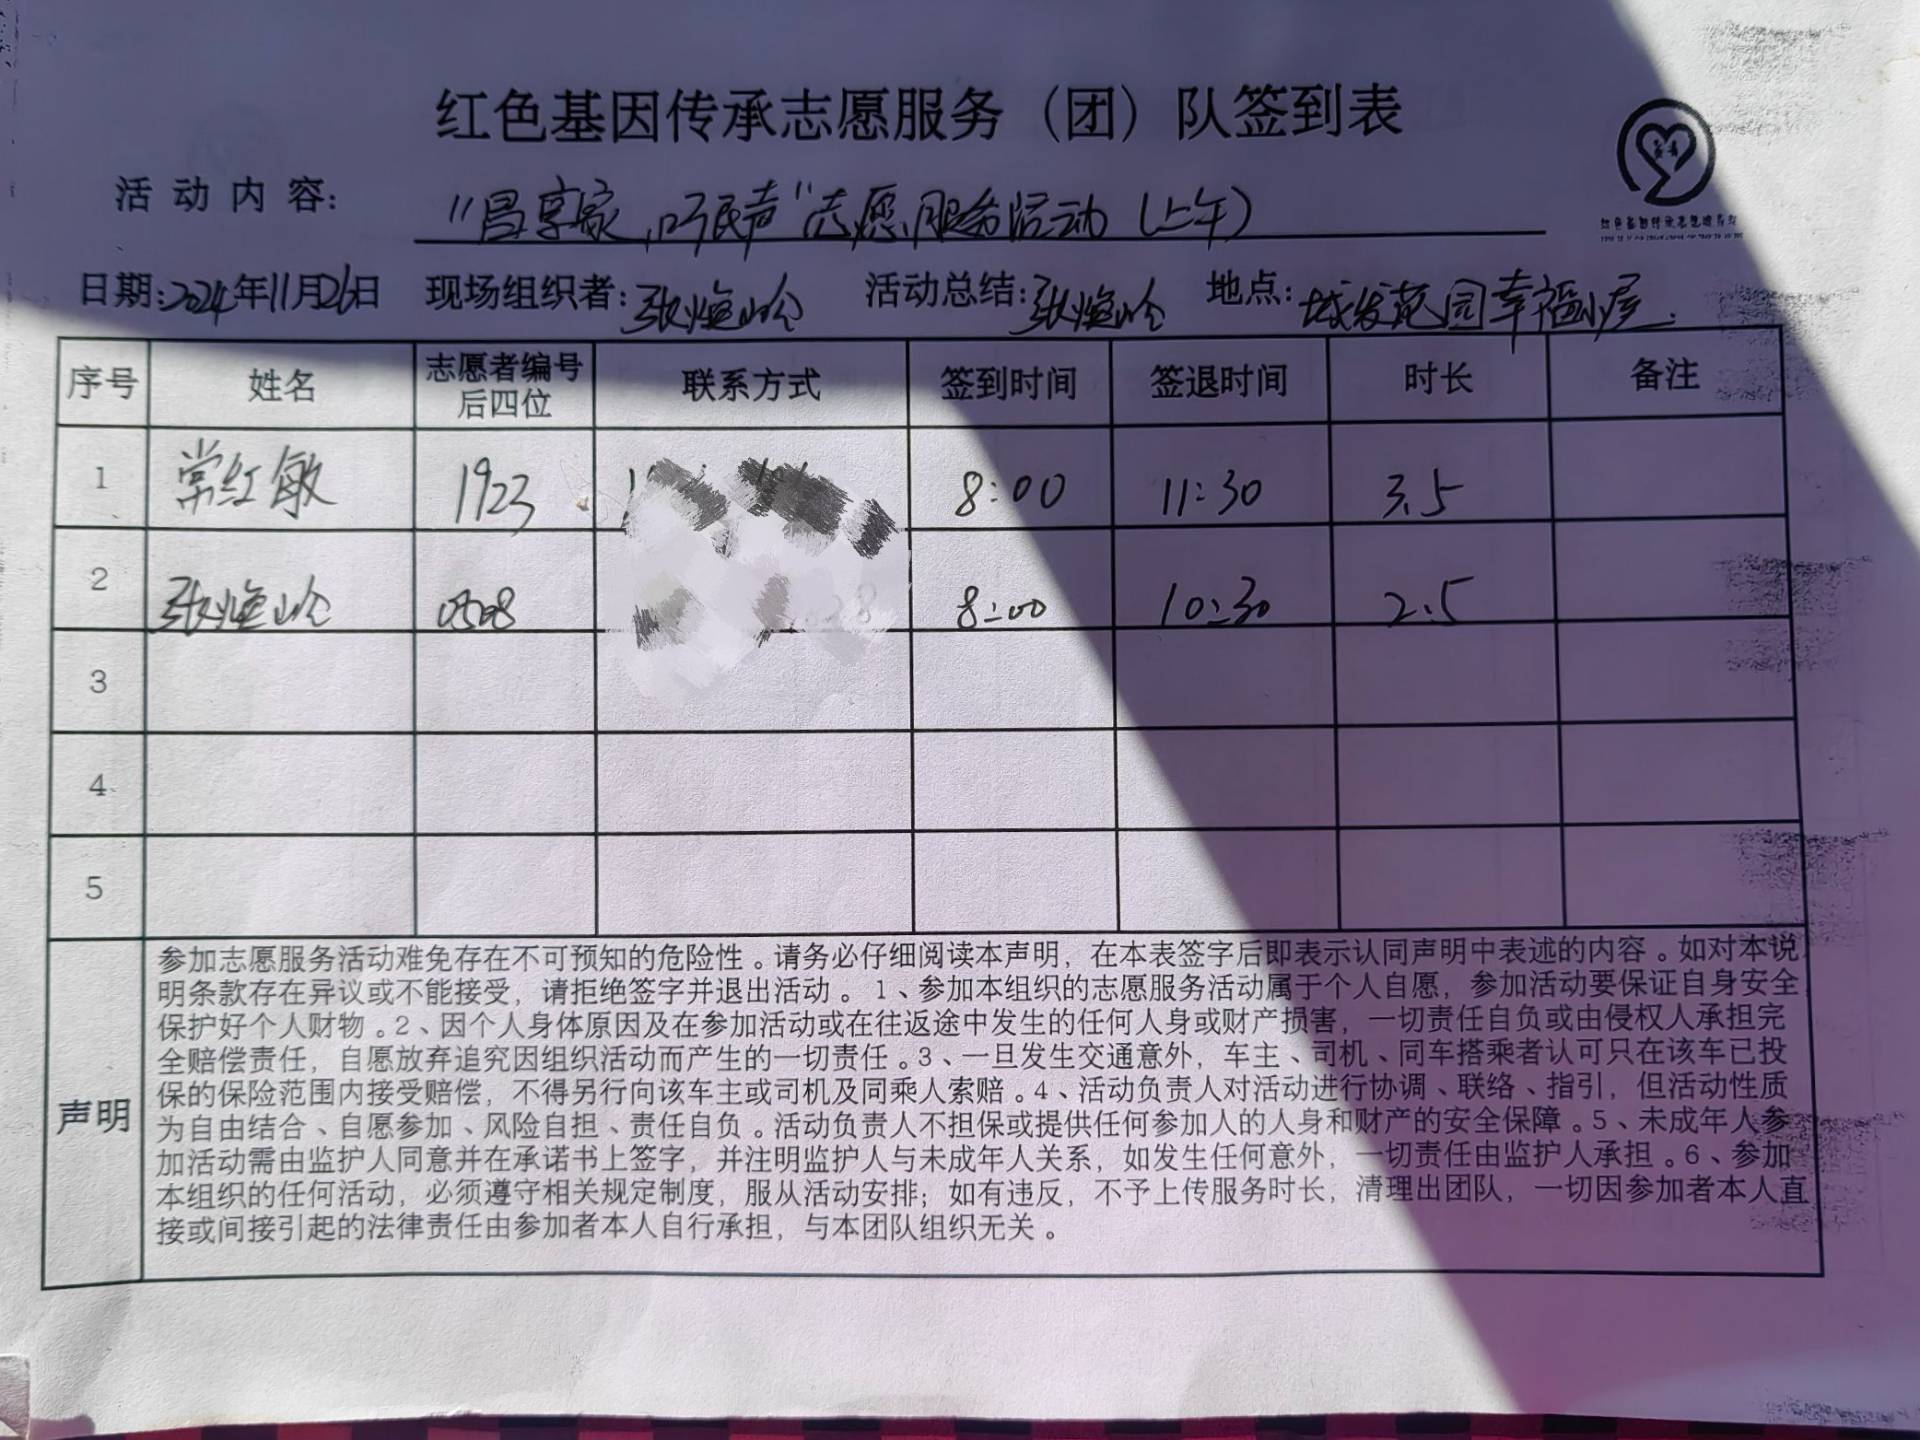 红色基因传承志愿服务（团）队签到表
活动内容：“昌享家，巧民声”志愿服务活动（上午）
日期：2024年11月26日 现场组织者：张 活动总结：张 地点：城发花园幸福小屋
序号 姓名 志愿者编号后四位 联系方式 签到时间 签退时间 时长 备注
1 常红敏 1923 8:00 11:30 3.5
2 张 0508 8:00 10:30 2.5
3
4
5
声明
参加志愿服务活动难免存在不可预知的危险性。请务必仔细阅读本声明，在本表签字后即表示认同声明中表述的内容。如对本说
明条款存在异议或不能接受，请拒绝签字并退出活动。1、参加本组织的志愿服务活动属于个人自愿，参加活动要保证自身安全
保护好个人财物。2、因个人身体原因及在参加活动或在往返途中发生的任何人身或财产损害，一切责任自负或由侵权人承担完
全赔偿责任，自愿放弃追究因组织活动而产生的一切责任。3、一旦发生交通意外，车主、司机、同车搭乘者认可只在该车已投
保的保险范围内接受赔偿，不得另行向该车主或司机及同乘人索赔。4、活动负责人对活动进行协调、联络、指引，但活动性质
为自由结合、自愿参加、风险自担、责任自负。活动负责人不担保或提供任何参加人的人身和财产的安全保障。5、未成年人参
加活动需由监护人同意并在承诺书上签字，并注明监护人与未成年人关系，如发生任何意外，一切责任由监护人承担。6、参加
本组织的任何活动，必须遵守相关规定制度，服从活动安排；如有违反，不予上传服务时长，清理出团队，一切因参加者本人直
接或间接引起的法律责任由参加者本人自行承担，与本团队组织无关。